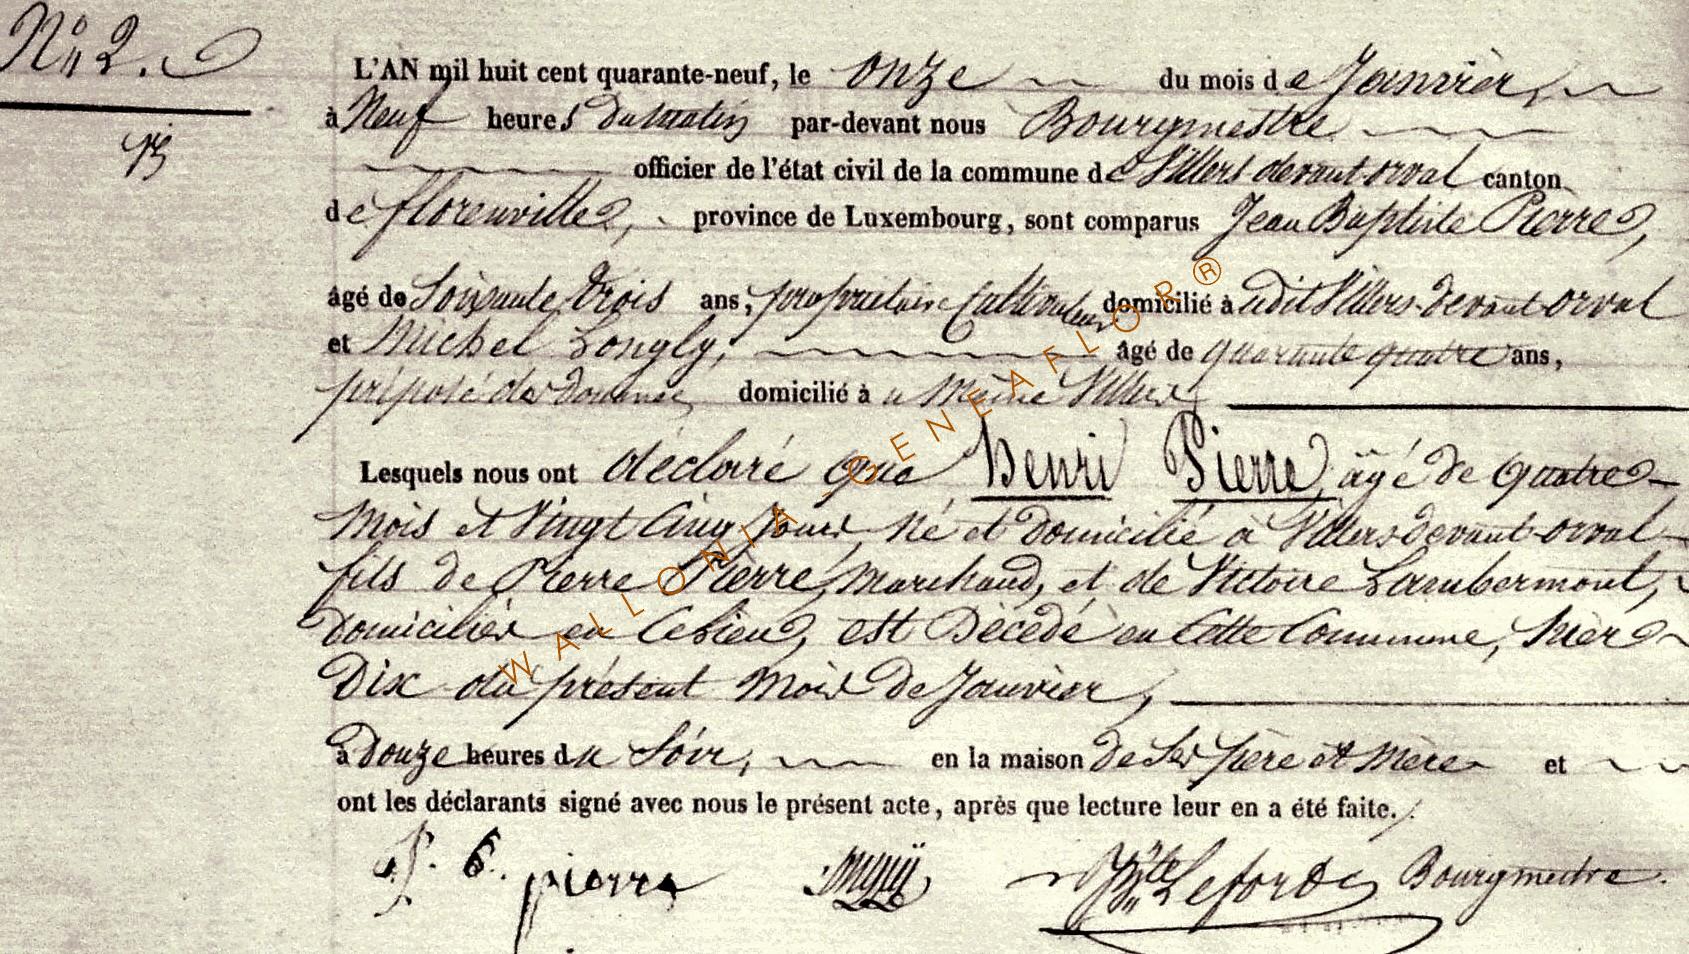 N° 2.
L'AN mil huit cent quarante-neuf, le onze du mois de Janvier,
à Neuf heures du matin par-devant nous Bourgmestre
officier de l'état civil de la commune de Villers devant orval canton
de florenville, province de Luxembourg, sont comparus Jean Baptiste Pierre,
âgé de Soixante trois ans, propriétaire Cultivateur domicilié à udit Villers devant orval
et Michel Longly, âgé de quarante quatre ans,
préposé des Douanes, domicilié à u Même Villers
Lesquels nous ont déclaré que Henri Pierre, âgé de quatre
Mois et Vingt Cinq Jours, Né et Domicilié à Villers devant orval
fils de Pierre Pierre, Marchand, et de Victoire Lambermont,
Domiciliés en Ce lieu, est Décédé en Cette Commune, hier
Dix du présent Mois de Janvier,
à Douze heures du Soir, en la maison de Ses père et Mère et
ont les déclarants signé avec nous le présent acte, après que lecture leur en a été faite.
pierre Leforde Bourgmestre.
WALLONIA GENEAFLOR ®